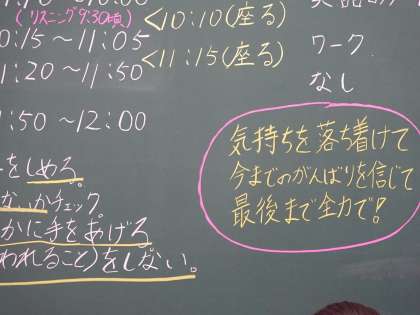 (リスニング9:30頃)
<10:10(座る)
0:15～11:05
<11:15(座る)
ワーク
:20～11:50
なし
:50～12:00
気持ちを落ち着けて
今までのがんばりを信じて
最後まで全力で!
をしめろ。
ないかチェック。
かに手をあげろ
われること)をしない。